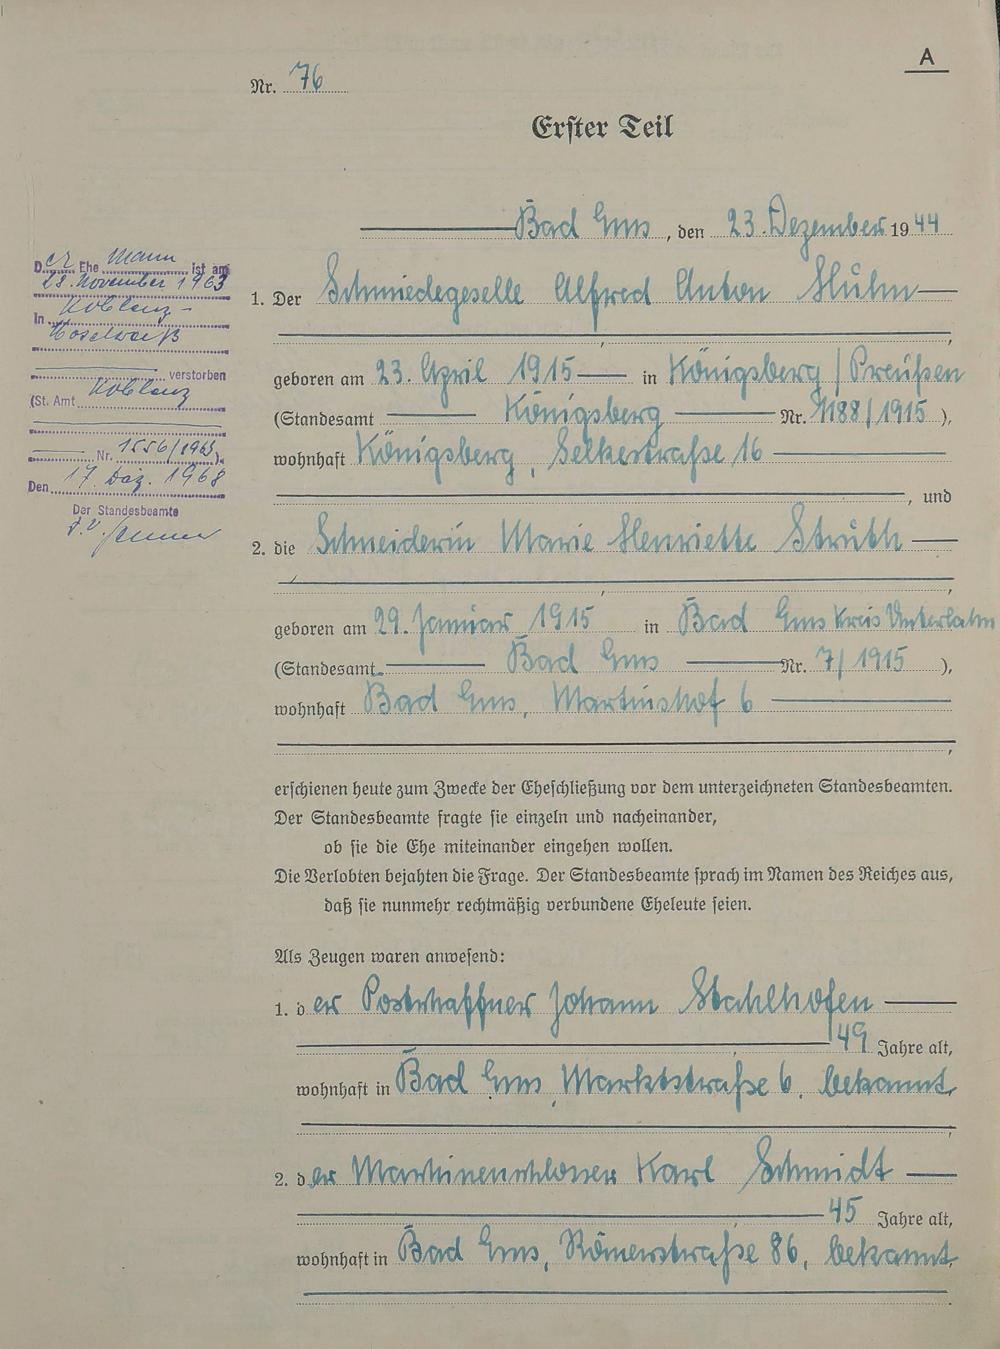 A
Nr. 76
Erster Teil
Bad Ems, den 23. Dezember 1944
1. Der Schmiedegeselle Alfred Anton Huhn
geboren am 23. April 1915 in Königsberg / Preußen
(Standesamt Königsberg Nr. 1188/1915),
wohnhaft Königsberg, Selkestraße 16
, und
2. die Schneiderin Marie Henriette Struth
geboren am 29. Januar 1915 in Bad Ems Kreis Unterlahn
(Standesamt Bad Ems Nr. 7/1915),
wohnhaft Bad Ems, Martinshof 6
erschienen heute zum Zwecke der Eheschließung vor dem unterzeichneten Standesbeamten.
Der Standesbeamte fragte sie einzeln und nacheinander,
ob sie die Ehe miteinander eingehen wollen.
Die Verlobten bejahten die Frage. Der Standesbeamte sprach im Namen des Reiches aus,
daß sie nunmehr rechtmäßig verbundene Eheleute seien.
Als Zeugen waren anwesend:
1. der Postschaffner Johann Stahlhofen
49 Jahre alt,
wohnhaft in Bad Ems, Marktstraße 6, bekannt
2. der Maschinenschlosser Karl Schmidt
45 Jahre alt,
wohnhaft in Bad Ems, Römerstraße 86, bekannt
Der Ehemann ist am
28. November 1963
In Koblenz-
Moselweiß
verstorben
(St. Amt Koblenz
Nr. 1556/1963).
Den 17. Dez. 1968
Der Standesbeamte
I.V.